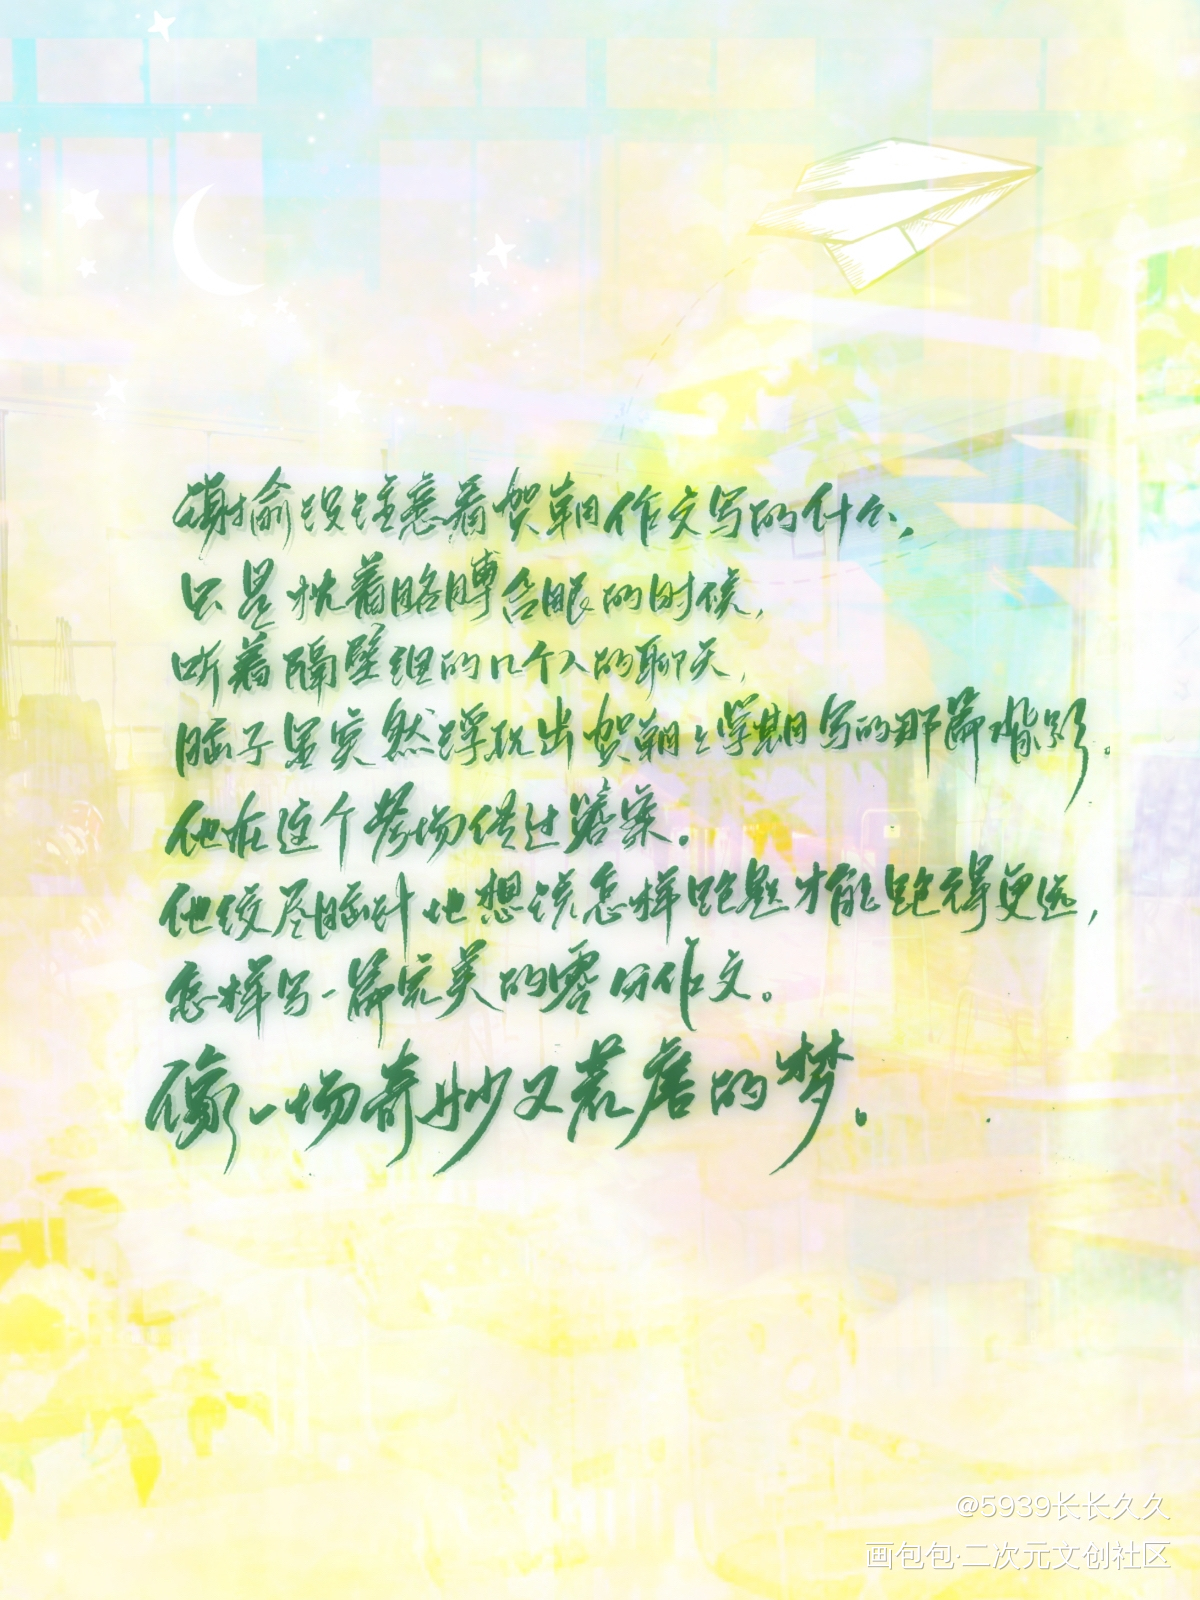 谢俞没注意看贺朝作文写的什么，
只是枕着胳膊合眼的时候，
听着隔壁组的几个人的聊天，
脑子里突然浮现出贺朝上学期写的那篇背影。
他在这个考场借过答案。
他绞尽脑汁地想该怎样跑题才能跑得更远，
怎样写一篇完美的零分作文。
像一场奇妙又荒唐的梦。
@5939长长久久
画包包·二次元文创社区